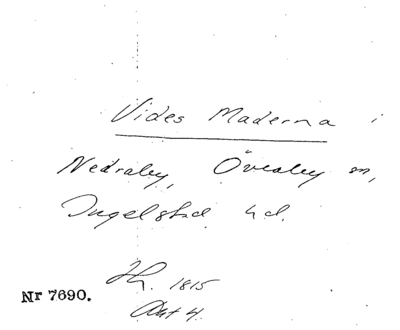 Vides Maderna i
Nedraby, Övraby sn,
Ingelstad hd.
1815
Akt 4.
Nr 7690.